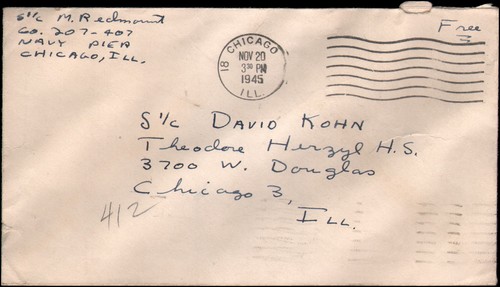 S1/c M. Redmount
Co. 207-407
Navy Pier
Chicago, Ill.
Free
CHICAGO
18
NOV 20
3 30 PM
1945
ILL.
S 1/c David Kohn
Theodore Herzyl H.S.
3700 W. Douglas
Chicago 3,
Ill.
412